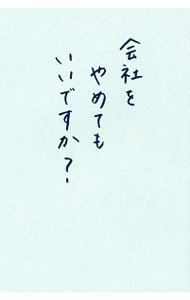 会社を
やめても
いいですか?